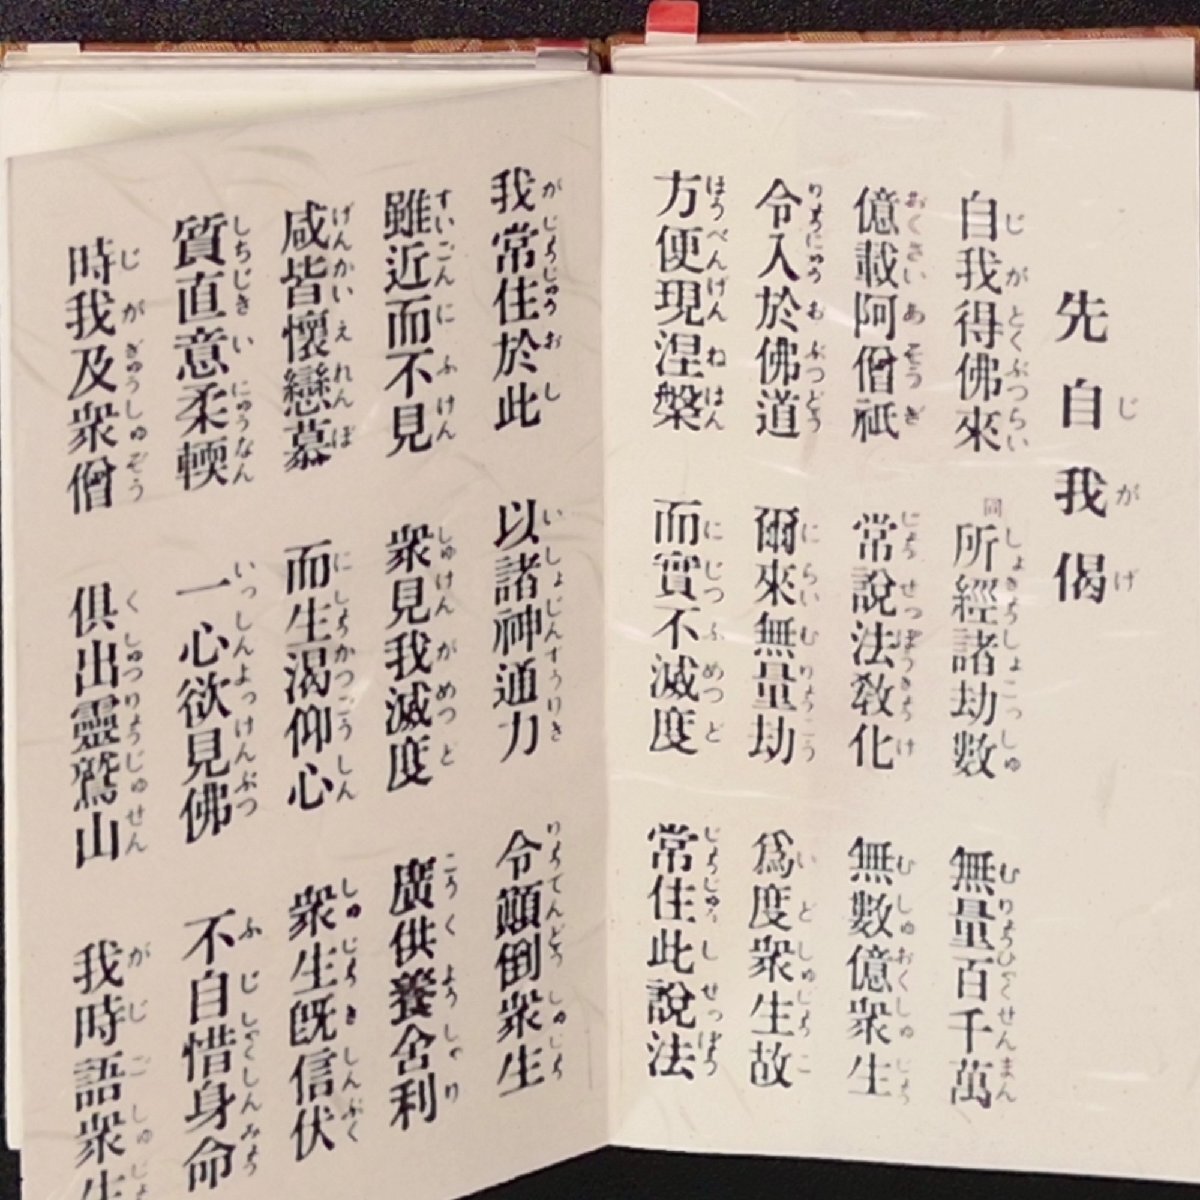 先自我偈
自我得佛來 所經諸劫數 無量百千萬
億載阿僧祇 常說法教化 無數億衆生
令入於佛道 爾來無量劫 爲度衆生故
方便現涅槃 而實不滅度 常住此說法
我常住於此 以諸神通力 令顚倒衆生
雖近而不見 衆見我滅度 廣供養舍利
咸皆懷戀慕 而生渴仰心 衆生旣信伏
質直意柔輭 一心欲見佛 不自惜身命
時我及衆僧 俱出靈鷲山 我時語衆生